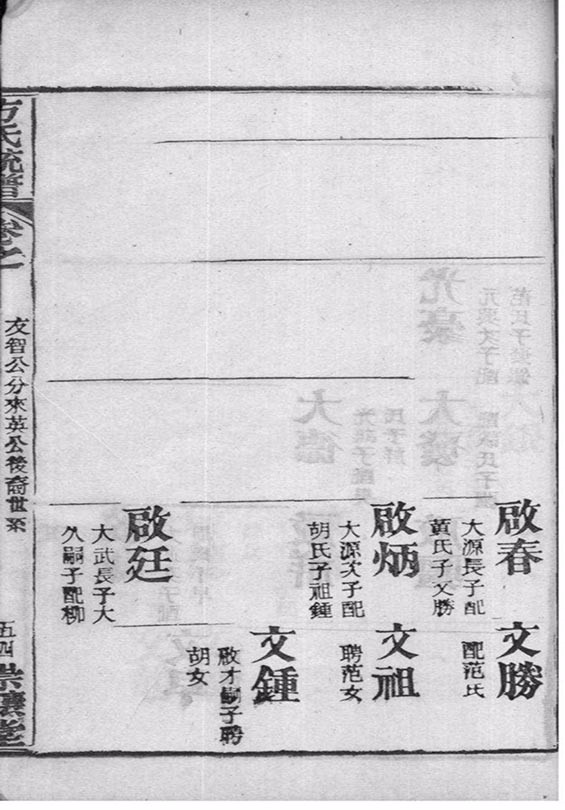 啟春
大源長子配
黃氏子文勝
文勝
配范氏
啟炳
大源次子配
胡氏子祖鍾
文祖
聘范女
文鍾
啟才嗣子聘
胡女
啟廷
大武長子大
久嗣子配柳
方氏統譜
卷之
友智公分來英公後裔世系
五四